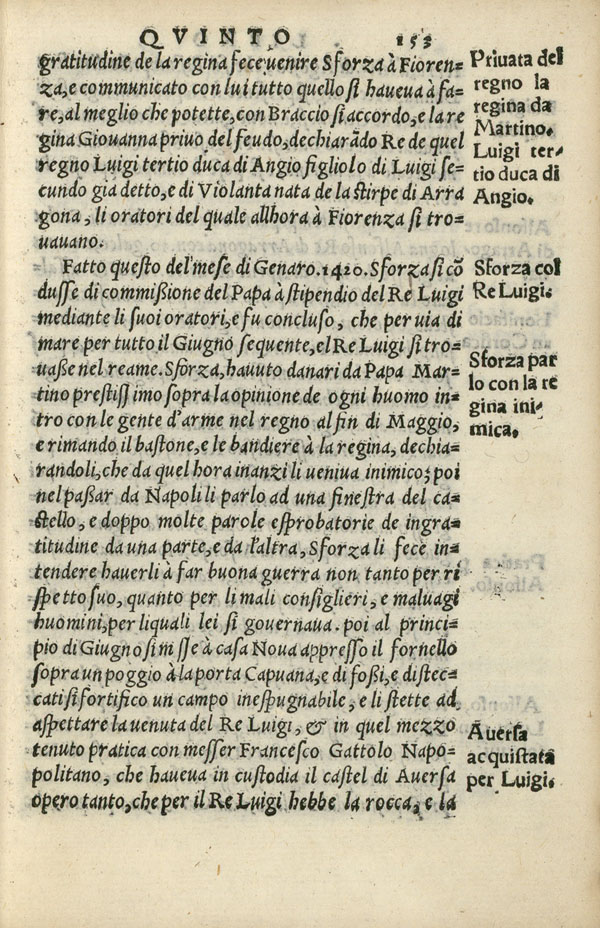 QVINTO 153
gratitudine de la regina fece uenire Sforza à Fioren=
za, e communicato con lui tutto quello si haueua à fa=
re, al meglio che potette, con Braccio si accordo, e la re
gina Giouanna priuo del feudo, dechiarãdo Re de quel
regno Luigi tertio duca di Angio figliolo di Luigi se=
cundo gia detto, e di Violanta nata de la stirpe di Arra
gona, li oratori del quale allhora à Fiorenza si tro=
uauano.
Fatto questo del mese di Genaro. 1420. Sforza si cō
dusse di commißione del Papa à stipendio del Re Luigi
mediante li suoi oratori, e fu concluso, che per uia di
mare per tutto il Giugno sequente, el Re Luigi si tro=
uaße nel reame. Sforza, hauuto danari da Papa Mar=
tino prestissimo sopra la opinione de ogni huomo in=
tro con le gente d'arme nel regno al fin di Maggio,
e rimando il bastone, e le bandiere à la regina, dechia=
randoli, che da quel hora inanzi li ueniua inimico; poi
nel paßar da Napoli li parlo ad una finestra del ca=
stello, e doppo molte parole esprobatorie de ingra=
titudine da una parte, e da l'altra, Sforza li fece in=
tendere hauerli à far buona guerra non tanto per ri
spetto suo, quanto per li mali consiglieri, e maluagi
huomini, per liquali lei si gouernaua. poi al princi=
pio di Giugno si misse à casa Noua appresso il fornello
sopra un poggio à la porta Capuana, e di foßi, e distec=
cati si fortifico un campo inespugnabile, e li stette ad
aspettare la uenuta del Re Luigi, & in quel mezzo
tenuto pratica con messer Francesco Gattolo Napo=
politano, che haueua in custodia il castel di Auersa
opero tanto, che per il Re Luigi hebbe la rocca, e la
Priuata del
regno la
regina da
Martino.
Luigi ter=
tio duca di
Angio.
Sforza col
Re Luigi.
Sforza par
lo con la re
gina ini=
mica.
Auersa
acquistata
per Luigi.